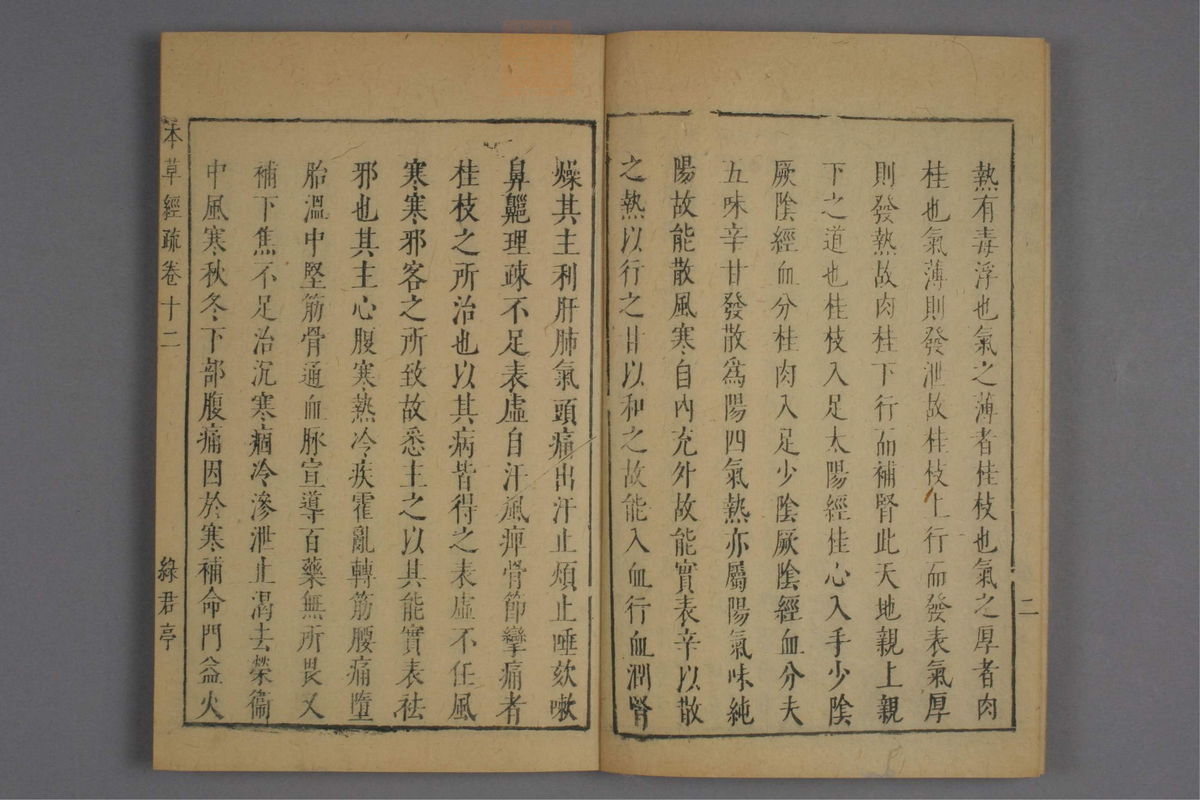 二
熱有毒浮也氣之薄者桂枝也氣之厚者肉
桂也氣薄則發泄故桂枝上行而發表氣厚
則發熱故肉桂下行而補腎此天地親上親
下之道也桂枝入足太陽經桂心入手少陰
厥陰經血分桂肉入足少陰厥陰經血分夫
五味辛甘發散爲陽四氣熱亦屬陽氣味純
陽故能散風寒自內充外故能實表辛以散
之熱以行之甘以和之故能入血行血潤腎
燥其主利肝肺氣頭痛出汗止煩止唾欬嗽
鼻齆理疎不足表虛自汗風痺骨節攣痛者
桂枝之所治也以其病皆得之表虛不任風
寒寒邪客之所致故悉主之以其能實表祛
邪也其主心腹寒熱冷疾霍亂轉筋腰痛墮
胎溫中堅筋骨通血脉宣導百藥無所畏又
補下焦不足治沉寒痼冷滲泄止渴去榮衞
中風寒秋冬下部腹痛因於寒補命門益火
本草經疏卷十二
綠君亭